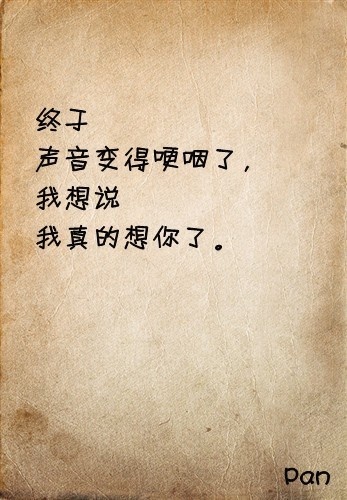 终于
声音变得哽咽了，
我想说
我真的想你了。
pan